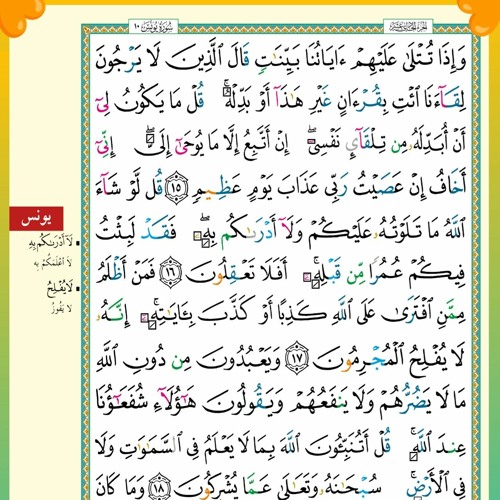 سورة يونس ١٠
الجزء الحادي عشر
وَإِذَا تُتْلَىٰ عَلَيْهِمْ ءَايَاتُنَا بَيِّنَٰتٍ قَالَ الَّذِينَ لَا يَرْجُونَ
لِقَآءَنَا ائْتِ بِقُرْءَانٍ غَيْرِ هَٰذَآ أَوْ بَدِّلْهُ ۚ قُلْ مَا يَكُونُ لِىٓ
أَنْ أُبَدِّلَهُۥ مِن تِلْقَآئِ نَفْسِىٓ ۖ إِنْ أَتَّبِعُ إِلَّا مَا يُوحَىٰٓ إِلَىَّ ۖ إِنِّىٓ
أَخَافُ إِنْ عَصَيْتُ رَبِّى عَذَابَ يَوْمٍ عَظِيمٍ ١٥ قُل لَّوْ شَآءَ
اللَّهُ مَا تَلَوْتُهُۥ عَلَيْكُمْ وَلَآ أَدْرَىٰكُم بِهِۦ ۖ فَقَدْ لَبِثْتُ
فِيكُمْ عُمُرًا مِّن قَبْلِهِۦٓ ۚ أَفَلَا تَعْقِلُونَ ١٦ فَمَنْ أَظْلَمُ
مِمَّنِ افْتَرَىٰ عَلَى اللَّهِ كَذِبًا أَوْ كَذَّبَ بِـَٔايَٰتِهِۦٓ ۚ إِنَّهُۥ
لَا يُفْلِحُ الْمُجْرِمُونَ ١٧ وَيَعْبُدُونَ مِن دُونِ اللَّهِ
مَا لَا يَضُرُّهُمْ وَلَا يَنفَعُهُمْ وَيَقُولُونَ هَٰٓؤُلَآءِ شُفَعَٰٓؤُنَا
عِندَ اللَّهِ ۚ قُلْ أَتُنَبِّـُٔونَ اللَّهَ بِمَا لَا يَعْلَمُ فِى السَّمَٰوَٰتِ وَلَا
فِى الْأَرْضِ ۚ سُبْحَٰنَهُۥ وَتَعَٰلَىٰ عَمَّا يُشْرِكُونَ ١٨ وَمَا كَانَ
يونس
لَآ أَدْرَىٰكُم بِهِۦ
لا أعْلَمَكُمْ به
لَا يُفْلِحُ
لا يَفُوزُ